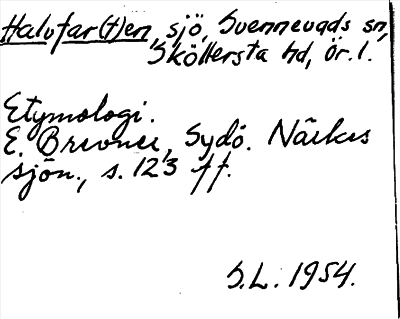 Halvfar(t)en, sjö, Svennevads sn,
Sköllersta hd, Ör. l.
Etymologi.
E. Brevner, Sydö. Närkes
sjön., s. 123 ff.
S.L. 1954.